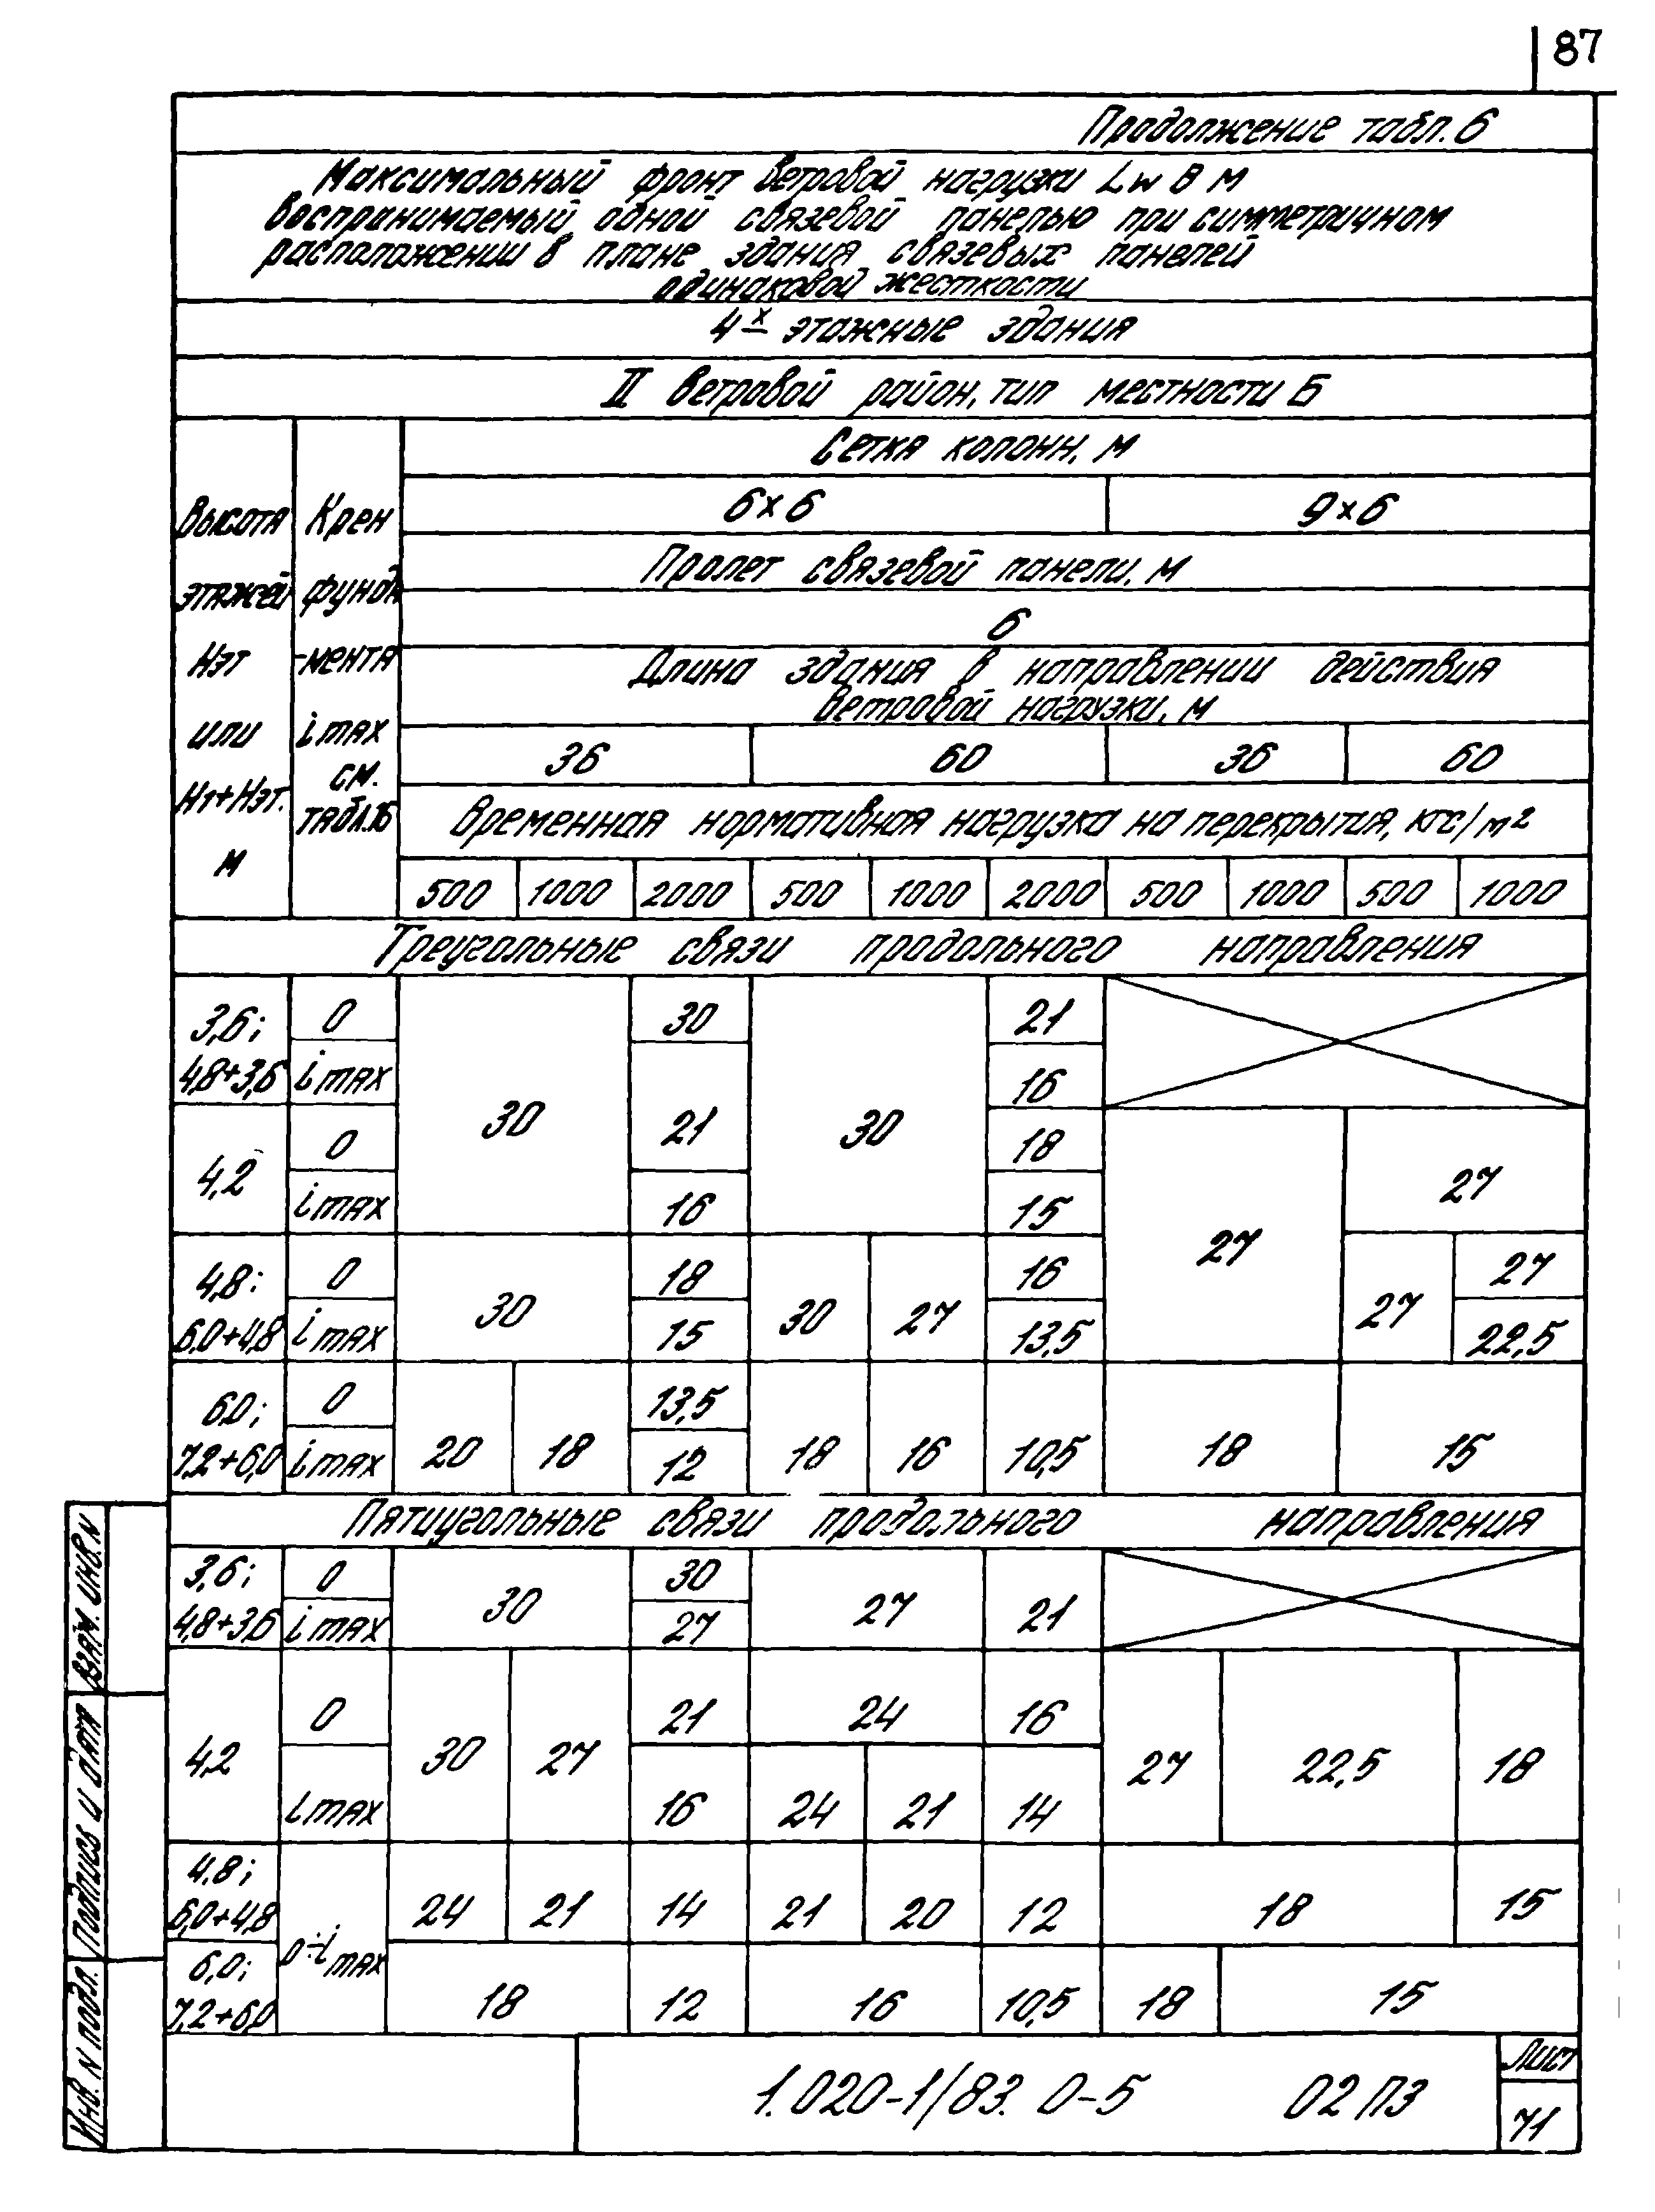 87
Продолжение табл. 6
Максимальный фронт ветровой нагрузки Lw в м
воспринимаемый одной связевой панелью при симметричном
расположении в плане здания связевых панелей
одинаковой жесткости
4х этажные здания
II ветровой район, тип местности Б
Высота
этажей
Нэт
или
Н1+Нэт.
м
Крен
фунда
-мента
i max
см.
табл.16
Сетка колонн, м
6×6 9×6
Пролет связевой панели, м
6
Длина здания в направлении действия
ветровой нагрузки, м
36 60 36 60
Временная нормативная нагрузка на перекрытия, кгс/м²
500 1000 2000 500 1000 2000 500 1000 500 1000
Треугольные связи продольного направления
3,6; 0 30 21
4,8+3,6 i max 16
30 21 30
4,2 0 18
27
i max 16 15
27
4,8; 0 18 16 27
6,0+4,8 i max 30 15 30 27 13,5 27 22,5
6,0; 0 13,5
7,2+6,0 i max 20 18 12 18 16 10,5 18 15
Пятиугольные связи продольного направления
3,6; 0 30 30 27 21
4,8+3,6 i max 27
4,2 0 21 24 16
30 27 27 22,5 18
i max 16 24 21 14
4,8;
6,0+4,8 24 21 14 21 20 12 18 15
0÷i max
6,0;
7,2+6,0 18 12 16 10,5 18 15
Взам. инв. N
Подпись и дата
Инв. N подл.
1.020-1/83. 0-5 02 ПЗ
Лист
71